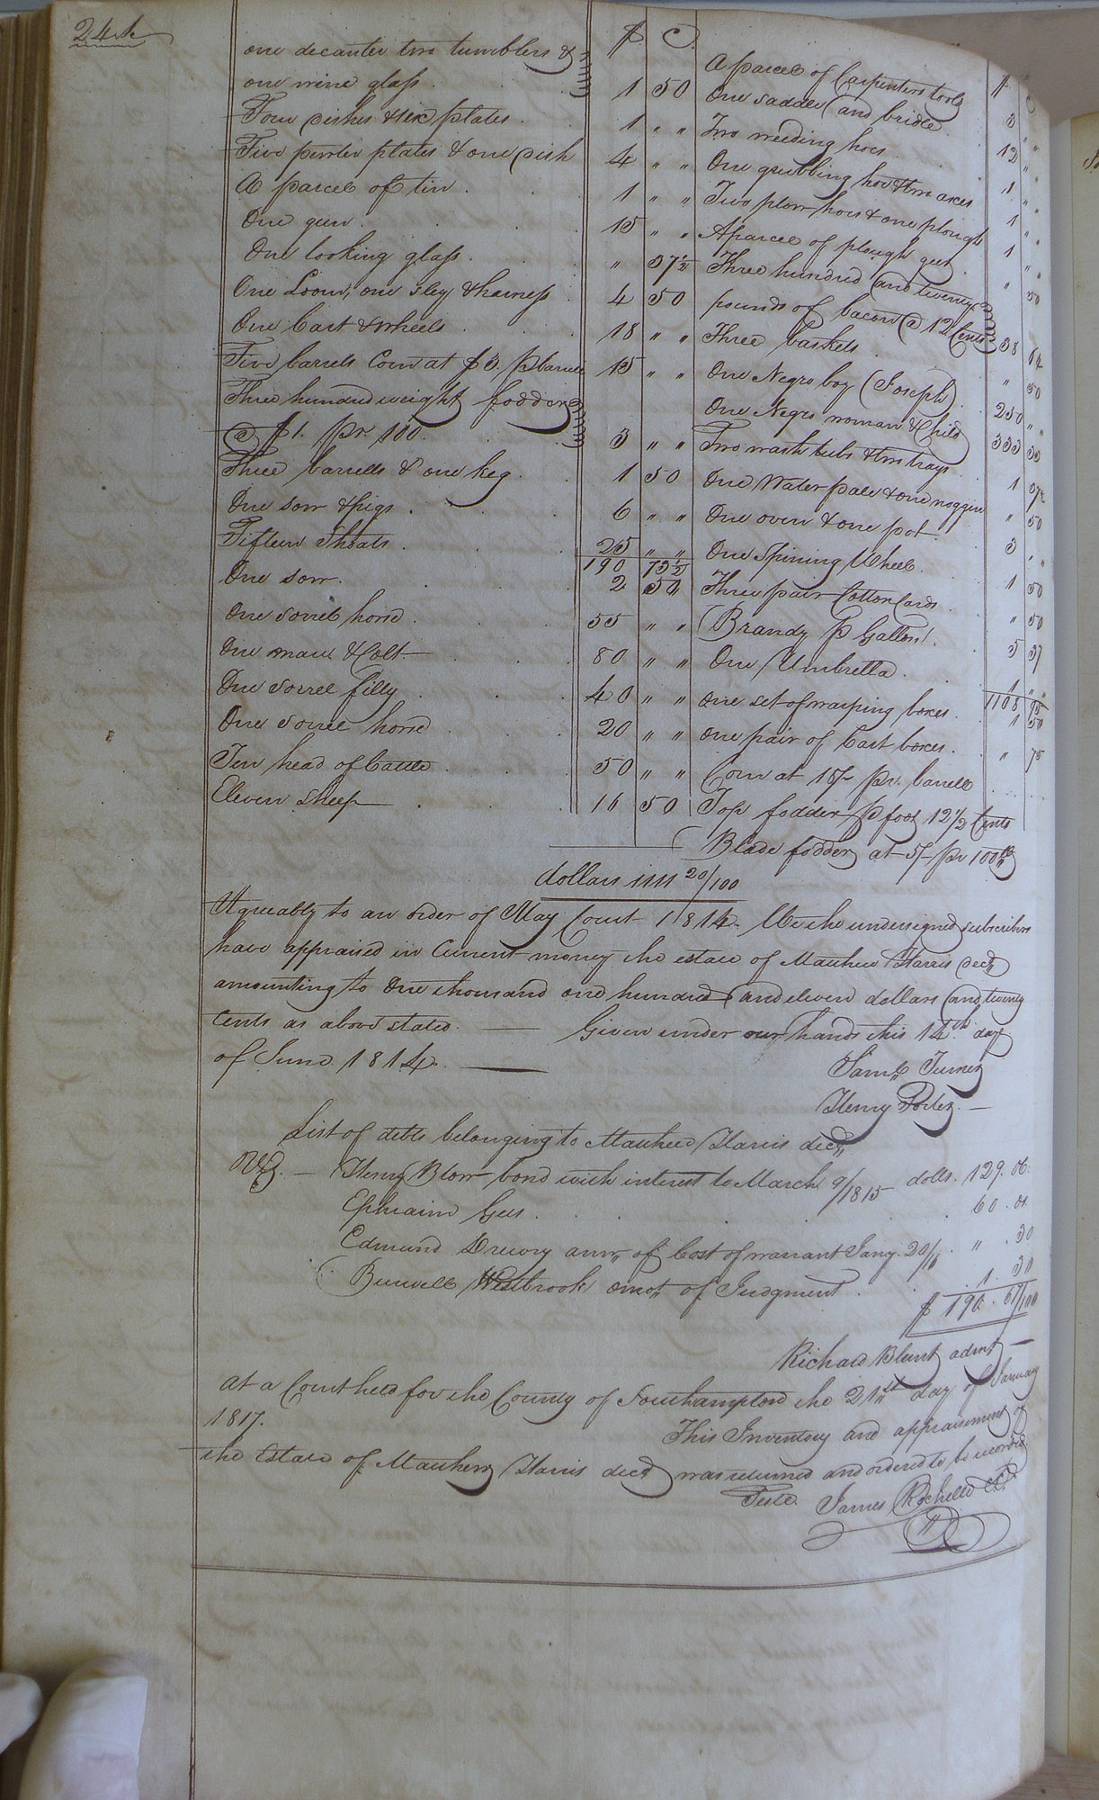 244
$ C
one decanter two tumblers &
one wine glass 1 50
Four dishes & six plates 1 " "
Five pewter plates & one dish 4 " "
A parcel of tin 1 " "
One gun 15 " "
One looking glass " 37½
One Loom, one sley & harness 4 50
One Cart & wheels 18 " "
Five barrels Corn at $3. p barrel 15 " "
Three hundred weight fodder
@ $1. pr. 100 3 " "
Three barrells & one keg 1 50
One sow & pigs 6 " "
Fifteen Shoats 25 " "
190 73½
One sow. 2 50
One sorrel horse 55 " "
One mare & Colt 80 " "
One sorrel filly 40 " "
One sorrel horse 20 " "
Ten head of Cattle 50 " "
Eleven Sheep 16 50
$ C
A parcel of Carpenters tools 3 " "
One saddle and bridle 12 " "
Two weeding hoes 1 " "
One grubbing hoe & two axes 1 " "
Two plow hoes & one plough 1 " "
A parcel of plough gear " 50
Three hundred and twenty
pounds of bacon @ 12 Cents 38
Three baskets " 50
One Negro boy (Joseph) 250 " "
One Negro woman & Child 333 33
Two wash tubs & two trays 1
One Water pale & one noggin " 50
One oven & one pot 3 " "
One Spining Wheel 1 50
Three pair Cotton Cards " 50
Brandy p Gallon 5 37
One Umbrella 1 " "
1108 95
One set of warping boxes 1 50
One pair of Cart boxes " 75
Corn at 15/- pr. barrell
Top fodder p foot 12½ Cents
Blade fodder at 5/- pr 100 lb
dollars 1111 20/100
Agreeably to an order of May Court 1814. We the undersigned subscribers
have appraised in Current money the estate of Matthew Harris decd
amounting to One thousand one hundred and eleven dollars and twenty
Cents as above stated. Given under our hands this 14th day
of June 1814.
Saml Turner
Henry Porter
List of debts belonging to Matthew Harris decd
Viz. Henry Blow bond with interest to March 9/1815 dolls. 129.
Ephraim Gee 60
Edmund Drewry amt of Cost of warrant Jany. " . 30
Burwell Westbrook amot of Judgment 1. 30
$ 190. 67/100
Richard Blunt admr
At a Court held for the County of Southampton the 21st day of January
1817.
This Inventory and appraisement of
the Estate of Matthew Harris decd was returned and ordered to be recorded
Teste James Rochelle CC.